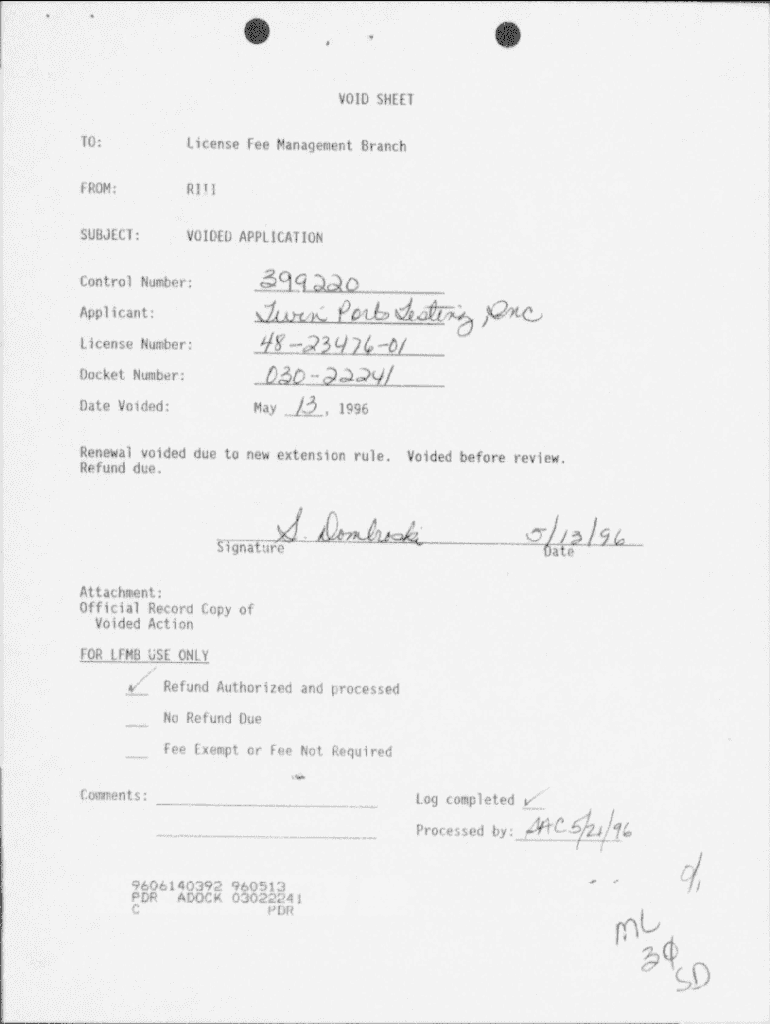 VOID SHEET
TO: License Fee Management Branch
FROM: RIII
SUBJECT: VOIDED APPLICATION
Control Number: 399220
Applicant: Twin Ports Testing, Inc
License Number: 48-23476-01
Docket Number: 030-22241
Date Voided: May 13, 1996
Renewal voided due to new extension rule. Voided before review.
Refund due.
S. Dombroski 5/13/96
Signature Date
Attachment:
Official Record Copy of
Voided Action
FOR LFMB USE ONLY
✓ Refund Authorized and processed
No Refund Due
Fee Exempt or Fee Not Required
Comments: Log completed ✓
Processed by: SAC 5/21/96
9606140392 960513
PDR ADOCK 03022241
C PDR
ML
30
SD